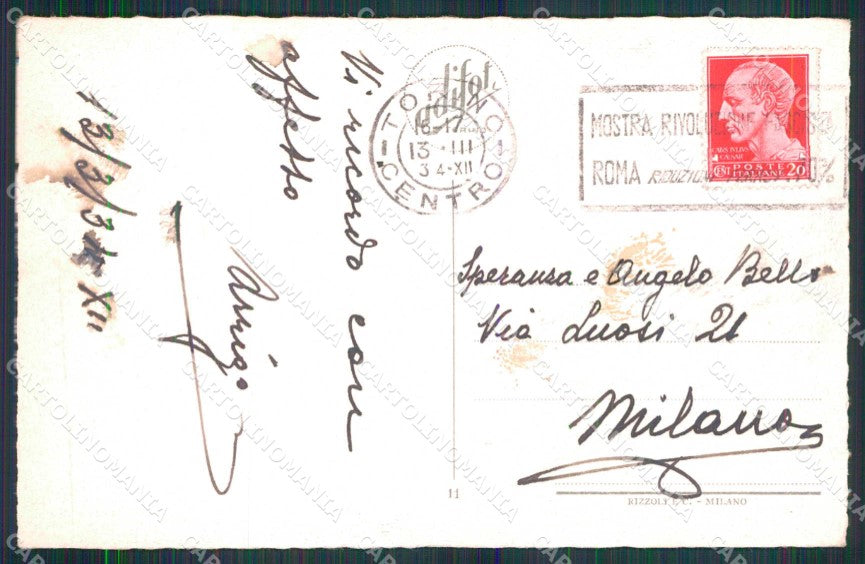 Vi ricordo con
affetto
Arrigo
13/3/34-XII
difot.
TORINO
16-17
13-III
34-XII
CENTRO
MOSTRA
ROMA
CAIVS IVLIVS
CAESAR
POSTE
CENT ITALIANE 20
Speranza e Angelo Bello
Via Luosi 21
Milano
11
RIZZOLI & C. - MILANO
CARTOLINOMANIA